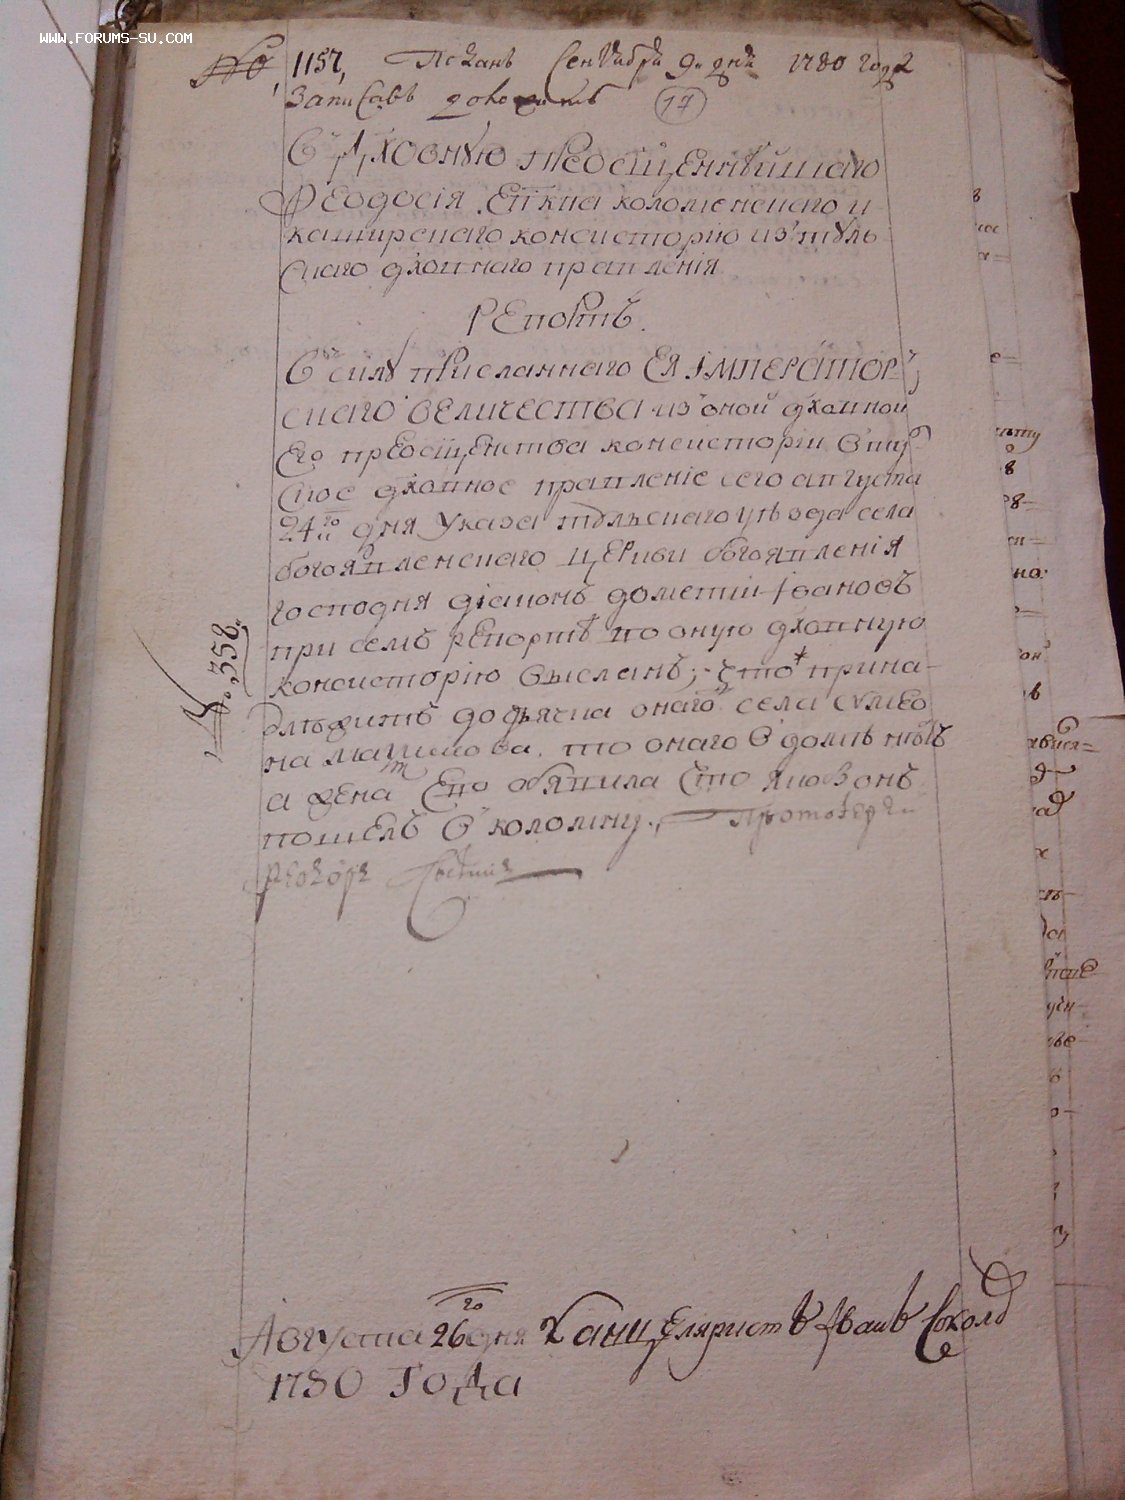 WWW.FORUMS-SU.COM
№ 1157, Поданъ Сентября 9 дня 1780 года
Записавъ доложить 17
Въ Дховную преосщеннѣйшаго
Ѳеодосія Епкпа коломенскаго и
каширскаго консисторію изъ туль
скаго дховнаго правленія
Репортъ.
Въ силу присланнаго Ея Імператор
скаго величества изъ оной дховной
Его преосщенства консисторіи въ туль
ское дховное правленіе сего августа
24го дня указа тульскаго уѣзда села
богоявленскаго церкви богоявленія
господня діаконъ дометій Ивановъ
при семъ репортѣ во оную дховную
консисторію высланъ; что принад
лѣжитъ до дьячка онаго села
то онаго в домѣ нѣтъ
а жена Ево объявила что якобъ онъ
пошелъ в коломну. Протоіерей
№ 358.
Августа 26го дня Канцеляристъ Іванъ Соколо
1780 года